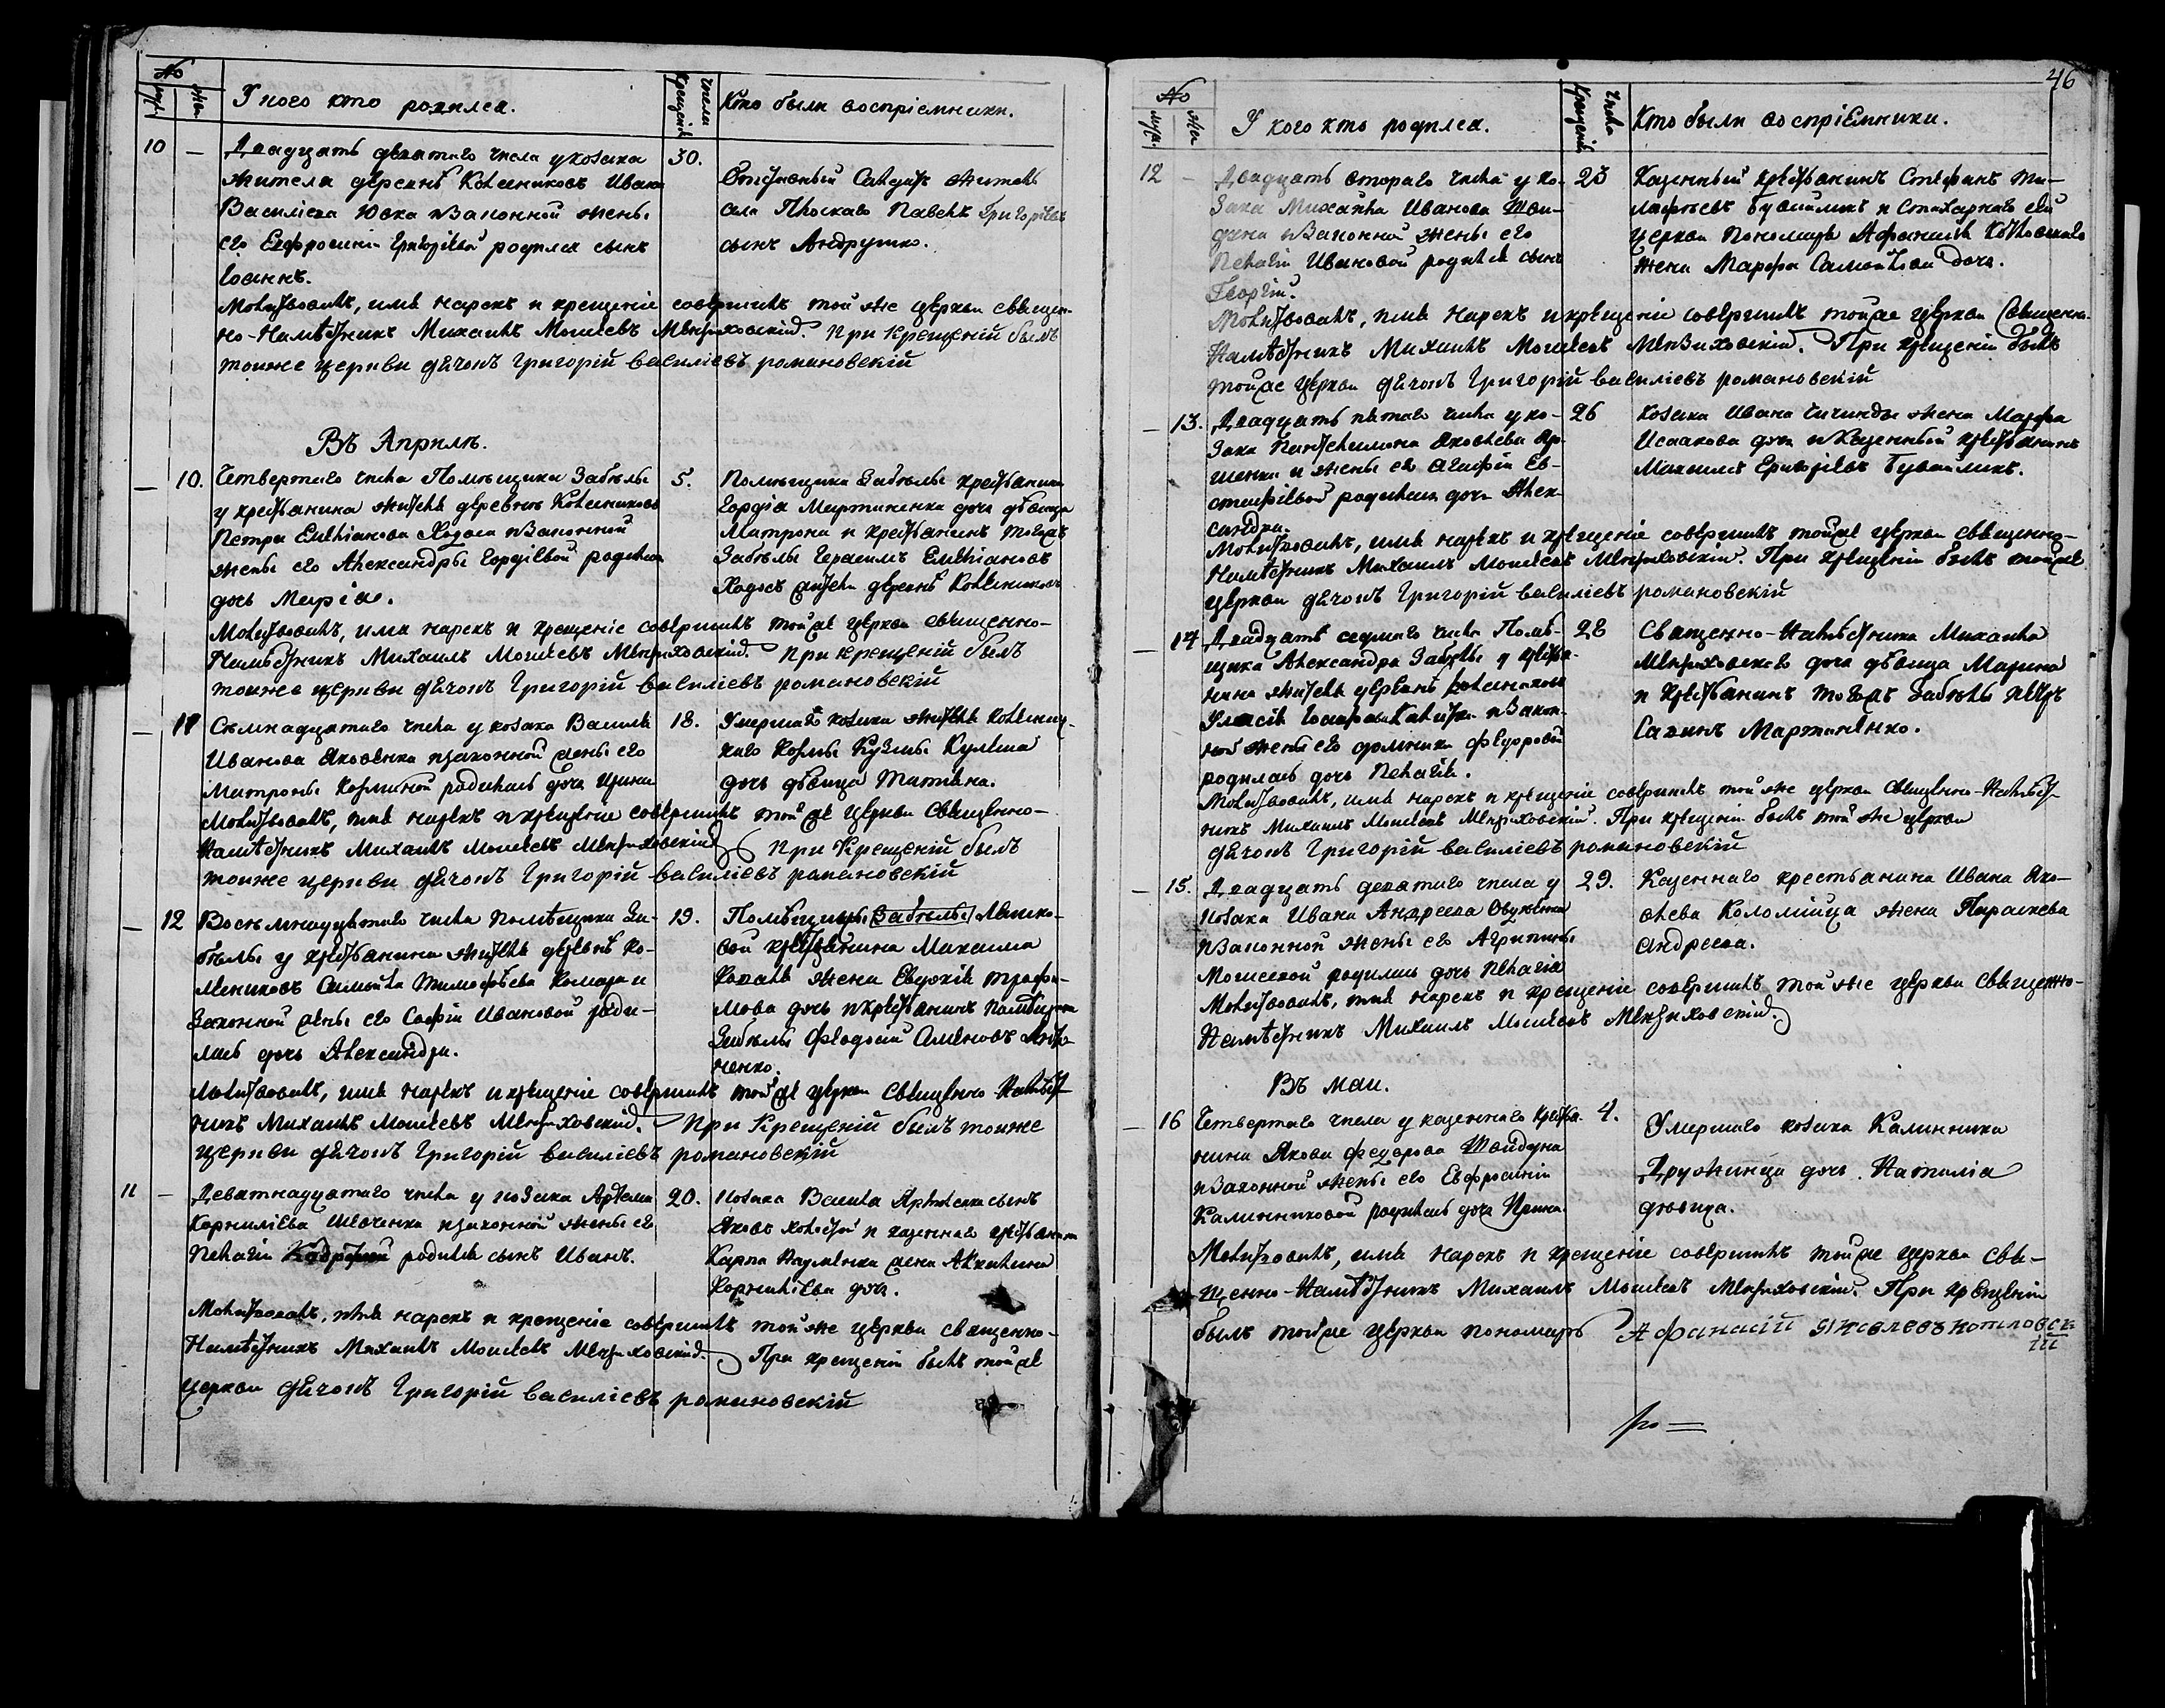 №
муж.
жен.
У кого кто родился.
число крещенія
Кто были воспріемники.
10 — Двадцать девятаго числа у козака
жителя деревнѣ Колесниковъ Ивана
Василіева Юска и законной жены
его Евфросиніи Григоріевой родился сынъ
Іоаннъ.
30.
Отпускный Солдатъ житель
села Плоскаго Павелъ Григоріевъ
сынъ Андрушко.
Молитвовалъ, имя нарекъ и крещеніе совершилъ той же церкви священ-
но-Намѣстникъ Михаилъ Моисеевъ Мензиховскій. При Крещеніи былъ
тоиже церкви дячокъ Григорій василіевъ романовскій
Въ Априлѣ.
— 10. Четвертаго числа Помѣщика Забѣлы
у крестьянина жителя деревнѣ Колесниковъ
Петра Емелianова Ходоса и законной
жены его Александры Гордіевой родилась
дочь Марія.
5.
Помѣщика Забѣлы крестьянина
Гордія Мартиненка дочь дѣвица
Матрона и крестьянинъ тогожъ
Забѣлы Герасимъ Емеліановъ
Ходосъ жители деревнѣ Колесниковъ
Молитвовалъ, имя нарекъ и крещеніе совершилъ тойже церкви священно-
Намѣстникъ Михаилъ Моисеевъ Мензиховскій. При крещеніи былъ
тоиже церкви дячокъ Григорій василіевъ романовскій
— 11 Семнадцатаго числа у козака Василія
Иванова Яковенка и законной жены его
Матроны родилась дочь Ирина
18.
Умершаго козака жителя
дочь дѣвица Татіяна.
Молитвовалъ, имя нарекъ и крещеніе совершилъ той же церкви Священно-
Намѣстникъ Михаилъ Моисеевъ Мензиховскій При Крещеніи былъ
тоиже церкви дячокъ Григорій василіевъ романовскій
— 12 Восемнадцятаго числа помѣщика За-
бѣлы у крестьянина жителя деревнѣ Ко-
лениковъ Самойла Тимофѣева Комара и
законной жены его Софіи Ивановой роди-
лась дочь Александра.
19.
Помѣщицы Забѣлы Машко-
вой крестьянина Максима
жена Евдокія Трофи-
мова дочь и крестьянинъ помѣщика
Забѣлы Феодосій Семеновъ
ненко.
Молитвовалъ, имя нарекъ и крещеніе совершилъ той же церкви Священно-Намѣст-
никъ Михаилъ Моисеевъ Мензиховскій. При Крещеніи былъ тоиже
церкви дячокъ Григорій василіевъ романовскій
11 — Девятнадцатаго числа у козака Артема
Корниліева Шевченка и законной жены его
Пелагіи родился сынъ Иванъ.
20.
Козака Василія сынъ
Яковъ холостой и казеннаго крестьянина
Карпа Науменка жена Акилина
Корниліева дочь.
Молитвовалъ, имя нарекъ и крещеніе совершилъ той же церкви священно-
Намѣстникъ Михаилъ Моисеевъ Мензиховскій. При крещеніи былъ той же
церкви дячокъ Григорій василіевъ романовскій
46
№
муж.
жен.
У кого кто родился.
Число Крещенія
Кто были воспріемники.
12 — Двадцать втораго числа у ко-
зака Михаила Иванова Шай-
дуна и законной жены его
Пелагіи Ивановой родился сынъ
Георгій.
23
Казенный крестьянинъ Стефанъ
и Стихарнаго сей
церкви Пономаря Афанасія Котловскаго
жена Марфа Самойлова дочь.
Молитвовалъ, имя нарекъ и крещеніе совершилъ тойже церкви Священно-
Намѣстникъ Михаилъ Моисеевъ Мензиховскій. При крещеніи былъ
тойже церкви дячокъ Григорій василіевъ романовскій
— 13. Двадцать пятаго числа у ко-
зака Пантелеимона Яковлева Яр-
шенки и жены его Агафіи Ев-
стафіевой родилась дочь Алек-
сандра.
26
Козака Ивана Чичинды жена Марфа
Исаакова дочь и казенный крестьянинъ
Максимъ Григоріевъ Бувайликъ.
Молитвовалъ, имя нарекъ и крещеніе совершилъ тойже церкви священно-
Намѣстникъ Михаилъ Моисеевъ Мензиховскій. При крещеніи былъ тойже
церкви дячокъ Григорій василіевъ романовскій
— 14 Двадцать седмаго числа Помѣ-
щика Александра Забѣлы у кресть-
янина жителя деревнѣ Колениковъ
и закон-
ной жены его Домники Федоровой
родилась дочь Пелагія.
28
Священно-Намѣстника Михаила
Мензиховскаго дочь дѣвица Марина
и крестьянинъ тогожъ Забѣлы Петръ
Савинъ Мартиненко.
Молитвовалъ, имя нарекъ и крещеніе совершилъ той же церкви Священно-Намѣст-
никъ Михаилъ Моисеевъ Мензиховскій. При крещеніи былъ той же церкви
дячокъ Григорій василіевъ романовскій
— 15. Двадцать девятаго числа у
козака Ивана Андреева
и законной жены его Агрипины
Моисеевой родилась дочь Пелагія
29.
Казеннаго крестьянина Ивана Яко-
влева Коломійца жена Параскева
Андреева.
Молитвовалъ, имя нарекъ и крещеніе совершилъ той же церкви Священно-
Намѣстникъ Михаилъ Моисеевъ Мензиховскій.
Въ маи.
— 16 Четвертаго числа у казеннаго кресть-
янина Якова Федорова Шайдуна
и законной жены его Евфросиніи
Калинниковой родилась дочь Ирина.
4.
Умершаго козака Калинника
Дружинца дочь Наталія
девица.
Молитвовалъ, имя нарекъ и крещеніе совершилъ тойже церкви Свя-
щенно-Намѣстникъ Михаилъ Моисеевъ Мензиховскій. При крещеніи
былъ тойже церкви пономарь Афанасій Яковлевъ котловск
ій